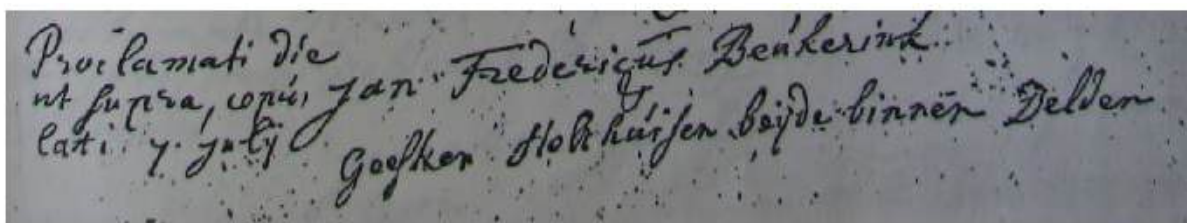 Proclamati die
ut supra, copu-
lati. 7. july
Jan Fredericus Beukerink
&
Geesken Holthuijsen beijde binnen Delden